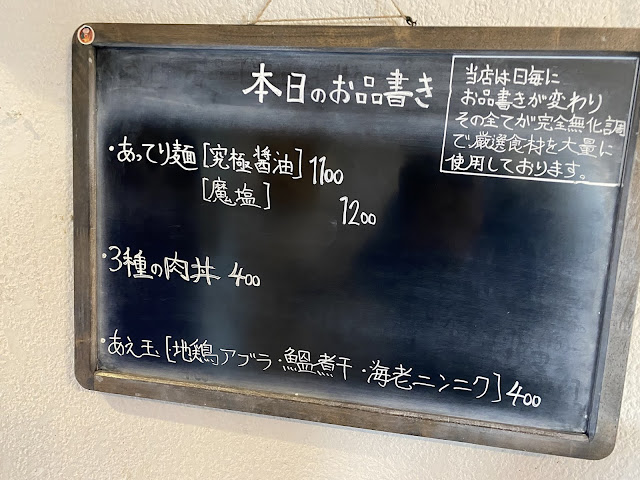 本日のお品書き
当店は日毎に
お品書きが変わり
その全てが完全無化調
で厳選食材を大量に
使用しております。
・あってり麺[究極醤油] 1100
[魔塩] 1200
・3種の肉丼 400
・あえ玉[地鶏アブラ・鰮煮干・海老ニンニク] 400